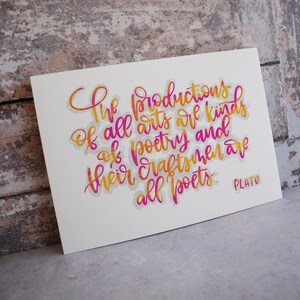 The productions
of all arts are kinds
of poetry and
their craftsmen are
all poets.
PLATO